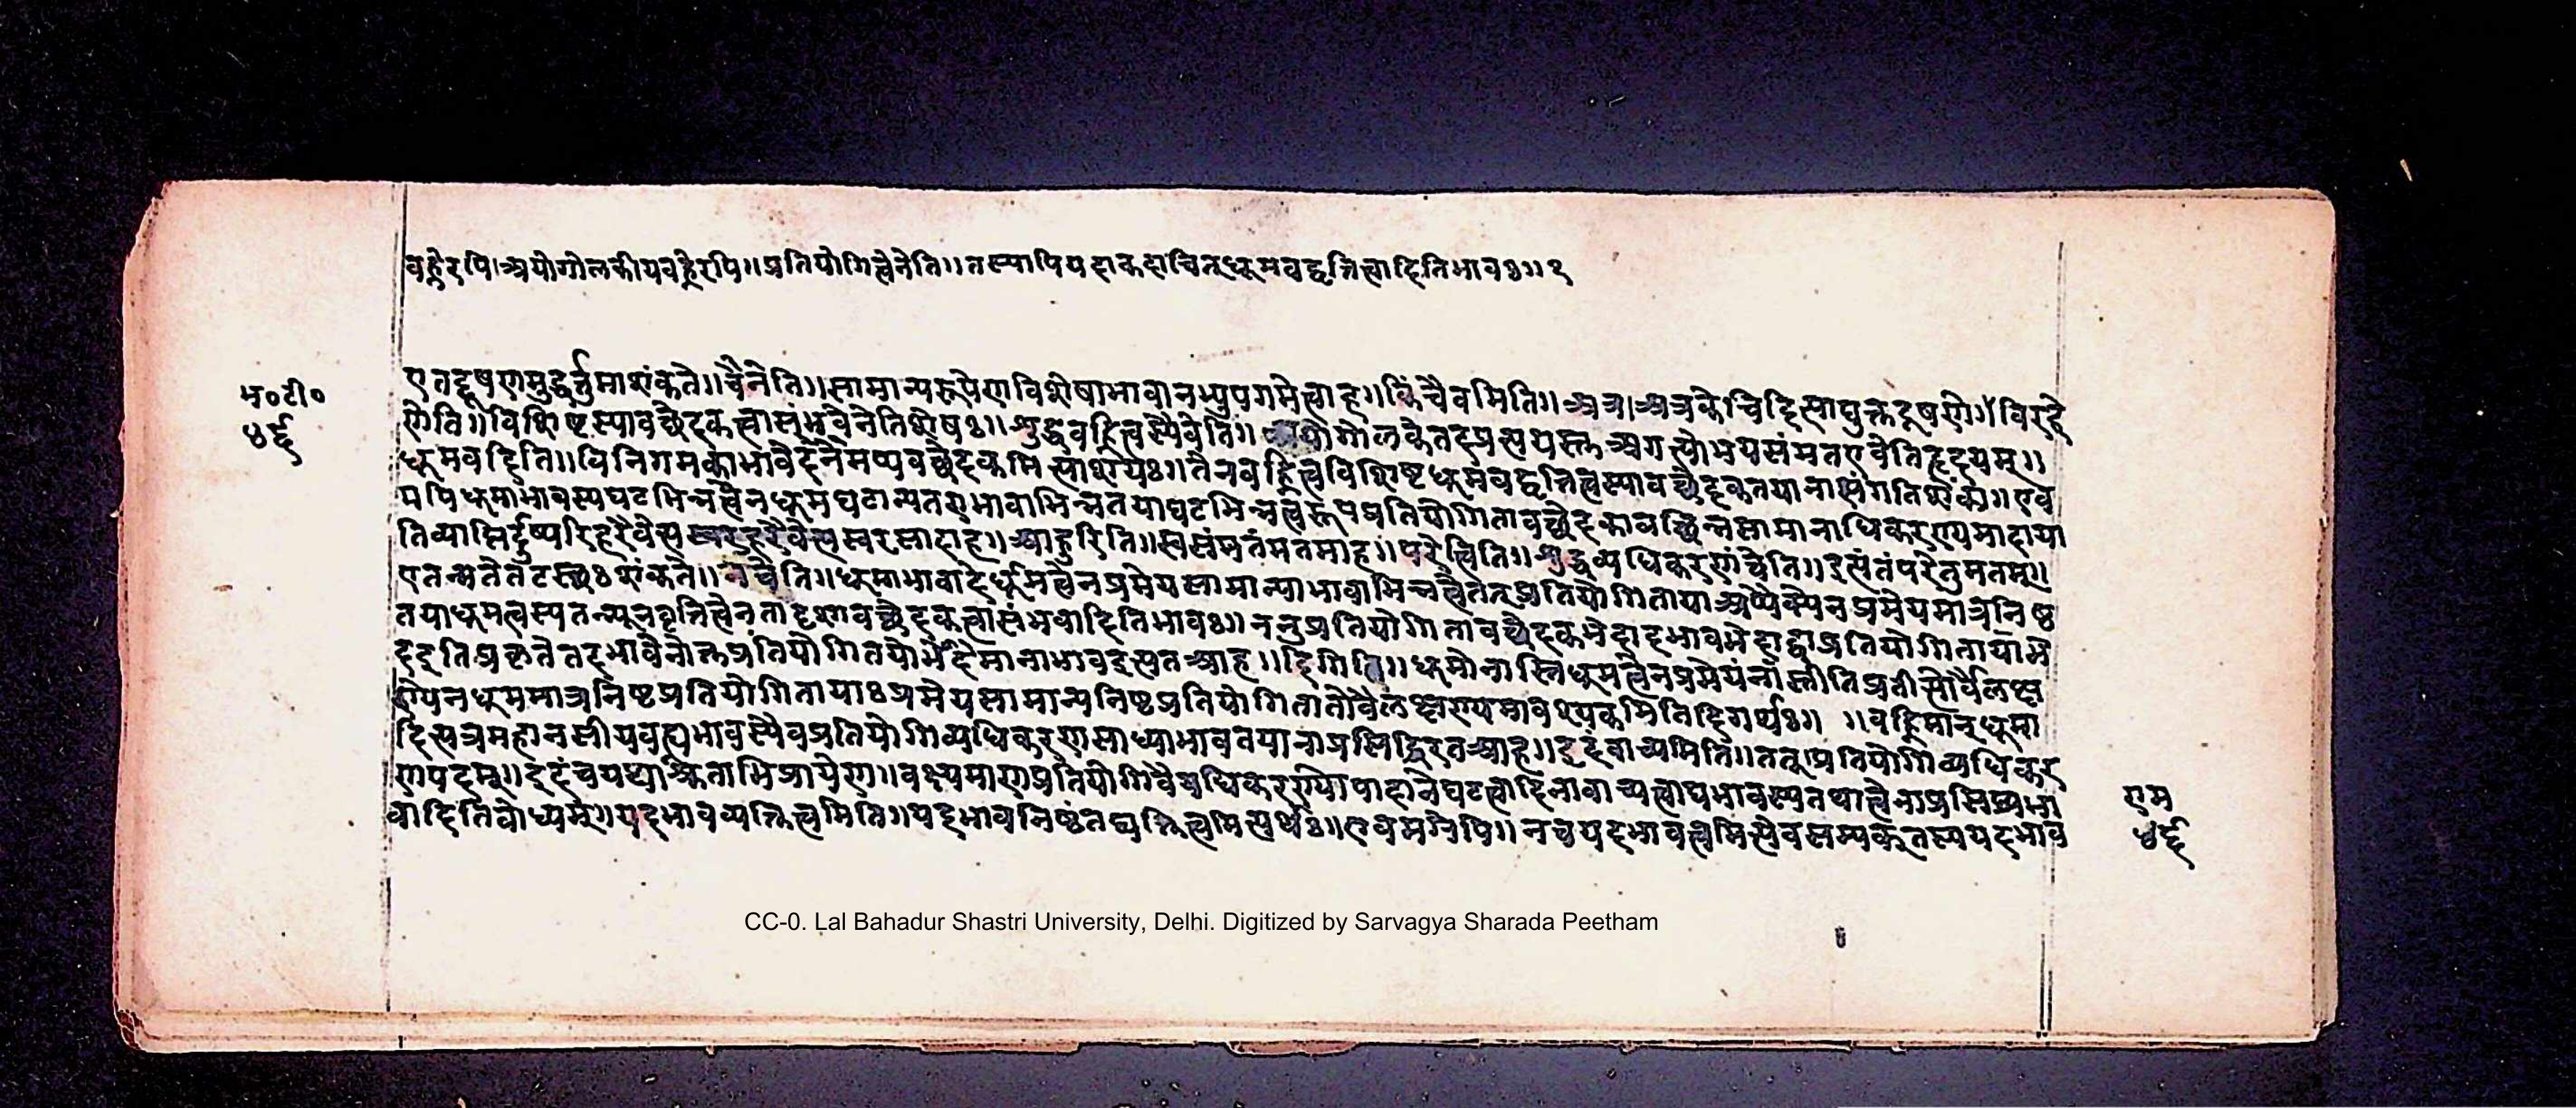 वह्नेरपि।अयोगोलकीयवह्नेरपि॥प्रतियोगित्वेनेति॥तस्यापियदाकदाचित्धूमवद्वृत्तित्वादितिभावः॥१
म॰टी॰
४६
एतद्दूषणमुद्धर्त्तुमाशंकते॥चैनेति॥सामान्यरूपेणविशेषाभावानभ्युपगमेत्वाह॥किंचैवमिति॥अत्र।अत्रकेचिदित्याद्युक्तदूषणे॥विरहे
णेति॥विशिष्टस्यावच्छेदकत्वासंभवेनेतिशेषः॥शुद्धवह्नित्वस्यैवेति॥ उभयसंमतएवेतिहृदयम्॥
धूमवदिति॥विनिगमकाभावेदनेमप्यवच्छेदकमित्याशयः॥तेनवह्नित्वविशिष्टधूमवद्वृत्तित्वस्यावच्छेदकतयानासंगतिशंका॥एव
मपिधूमाभावस्यघटभिन्नत्वेनधूमघटान्यतराभावाभिन्नतयाघटभिन्नत्वरूपप्रतियोगितावच्छेदकावच्छिन्नसामानाधिकरण्यमादाया
तिव्याप्तिर्दुष्परिहरैवेत्यस्वरसादाह॥आहुरिति॥स्वसंमतंमतमाह॥परेत्विति॥शुद्धव्यधिकरणंचेति॥इत्थंतंपरेतुमतम्॥
एतन्मतेतटस्थःशंकते॥नचेति॥धूमाभावादेर्धूमत्वेनप्रमेयसामान्याभावाभिन्नत्वेतत्प्रतियोगितायाअप्यैक्येनप्रमेयमात्रनिष्ठ
तयाधूमत्वस्यतन्न्यूनवृत्तित्वेनतादृशावच्छेदकत्वासंभवादितिभावः॥ननुप्रतियोगितावच्छेदकभेदादभावभेदाद्वाप्रतियोगितायाभे
दइतिप्रकृतेतदभावेनोक्तप्रतियोगितयोर्भेदेमानाभावइत्यतआह॥दिगिति॥धूमोनास्तिधूमत्वेनप्रमेयंनास्तीतिप्रतीत्योर्वैलक्ष
ण्येनधूममात्रनिष्टप्रतियोगितायाःप्रमेयसामान्यनिष्टप्रतियोगितातोवैलक्षण्यमावश्यकमितिदिगर्थः॥ ॥वह्निमान्धूमा
दित्यत्रमहानसीयवह्न्यभावस्यैवप्रतियोगिव्यधिकरणसाध्याभावतयानाप्रसिद्धिरतआह॥इदंवाच्यमिति॥तत्।प्रतियोगिव्यधिकर
णपदम्॥इदंचयथाश्रुताभिप्रायेण॥वक्ष्यमाणप्रतियोगिवैयधिकरण्योपादानेघटत्वादिनावाच्यत्वाद्यभावस्यतथात्वेनाप्रसिद्ध्यभा
वादितिबोध्यम्॥यदभावव्यक्तित्वमिति॥यदभावनिष्ठंतद्व्यक्तित्वमित्यर्थः॥एवमग्रेपि॥नचयदभावत्वमित्येवसम्यक्तस्ययदभाव
एम
४६
CC-0. Lal Bahadur Shastri University, Delhi. Digitized by Sarvagya Sharada Peetham